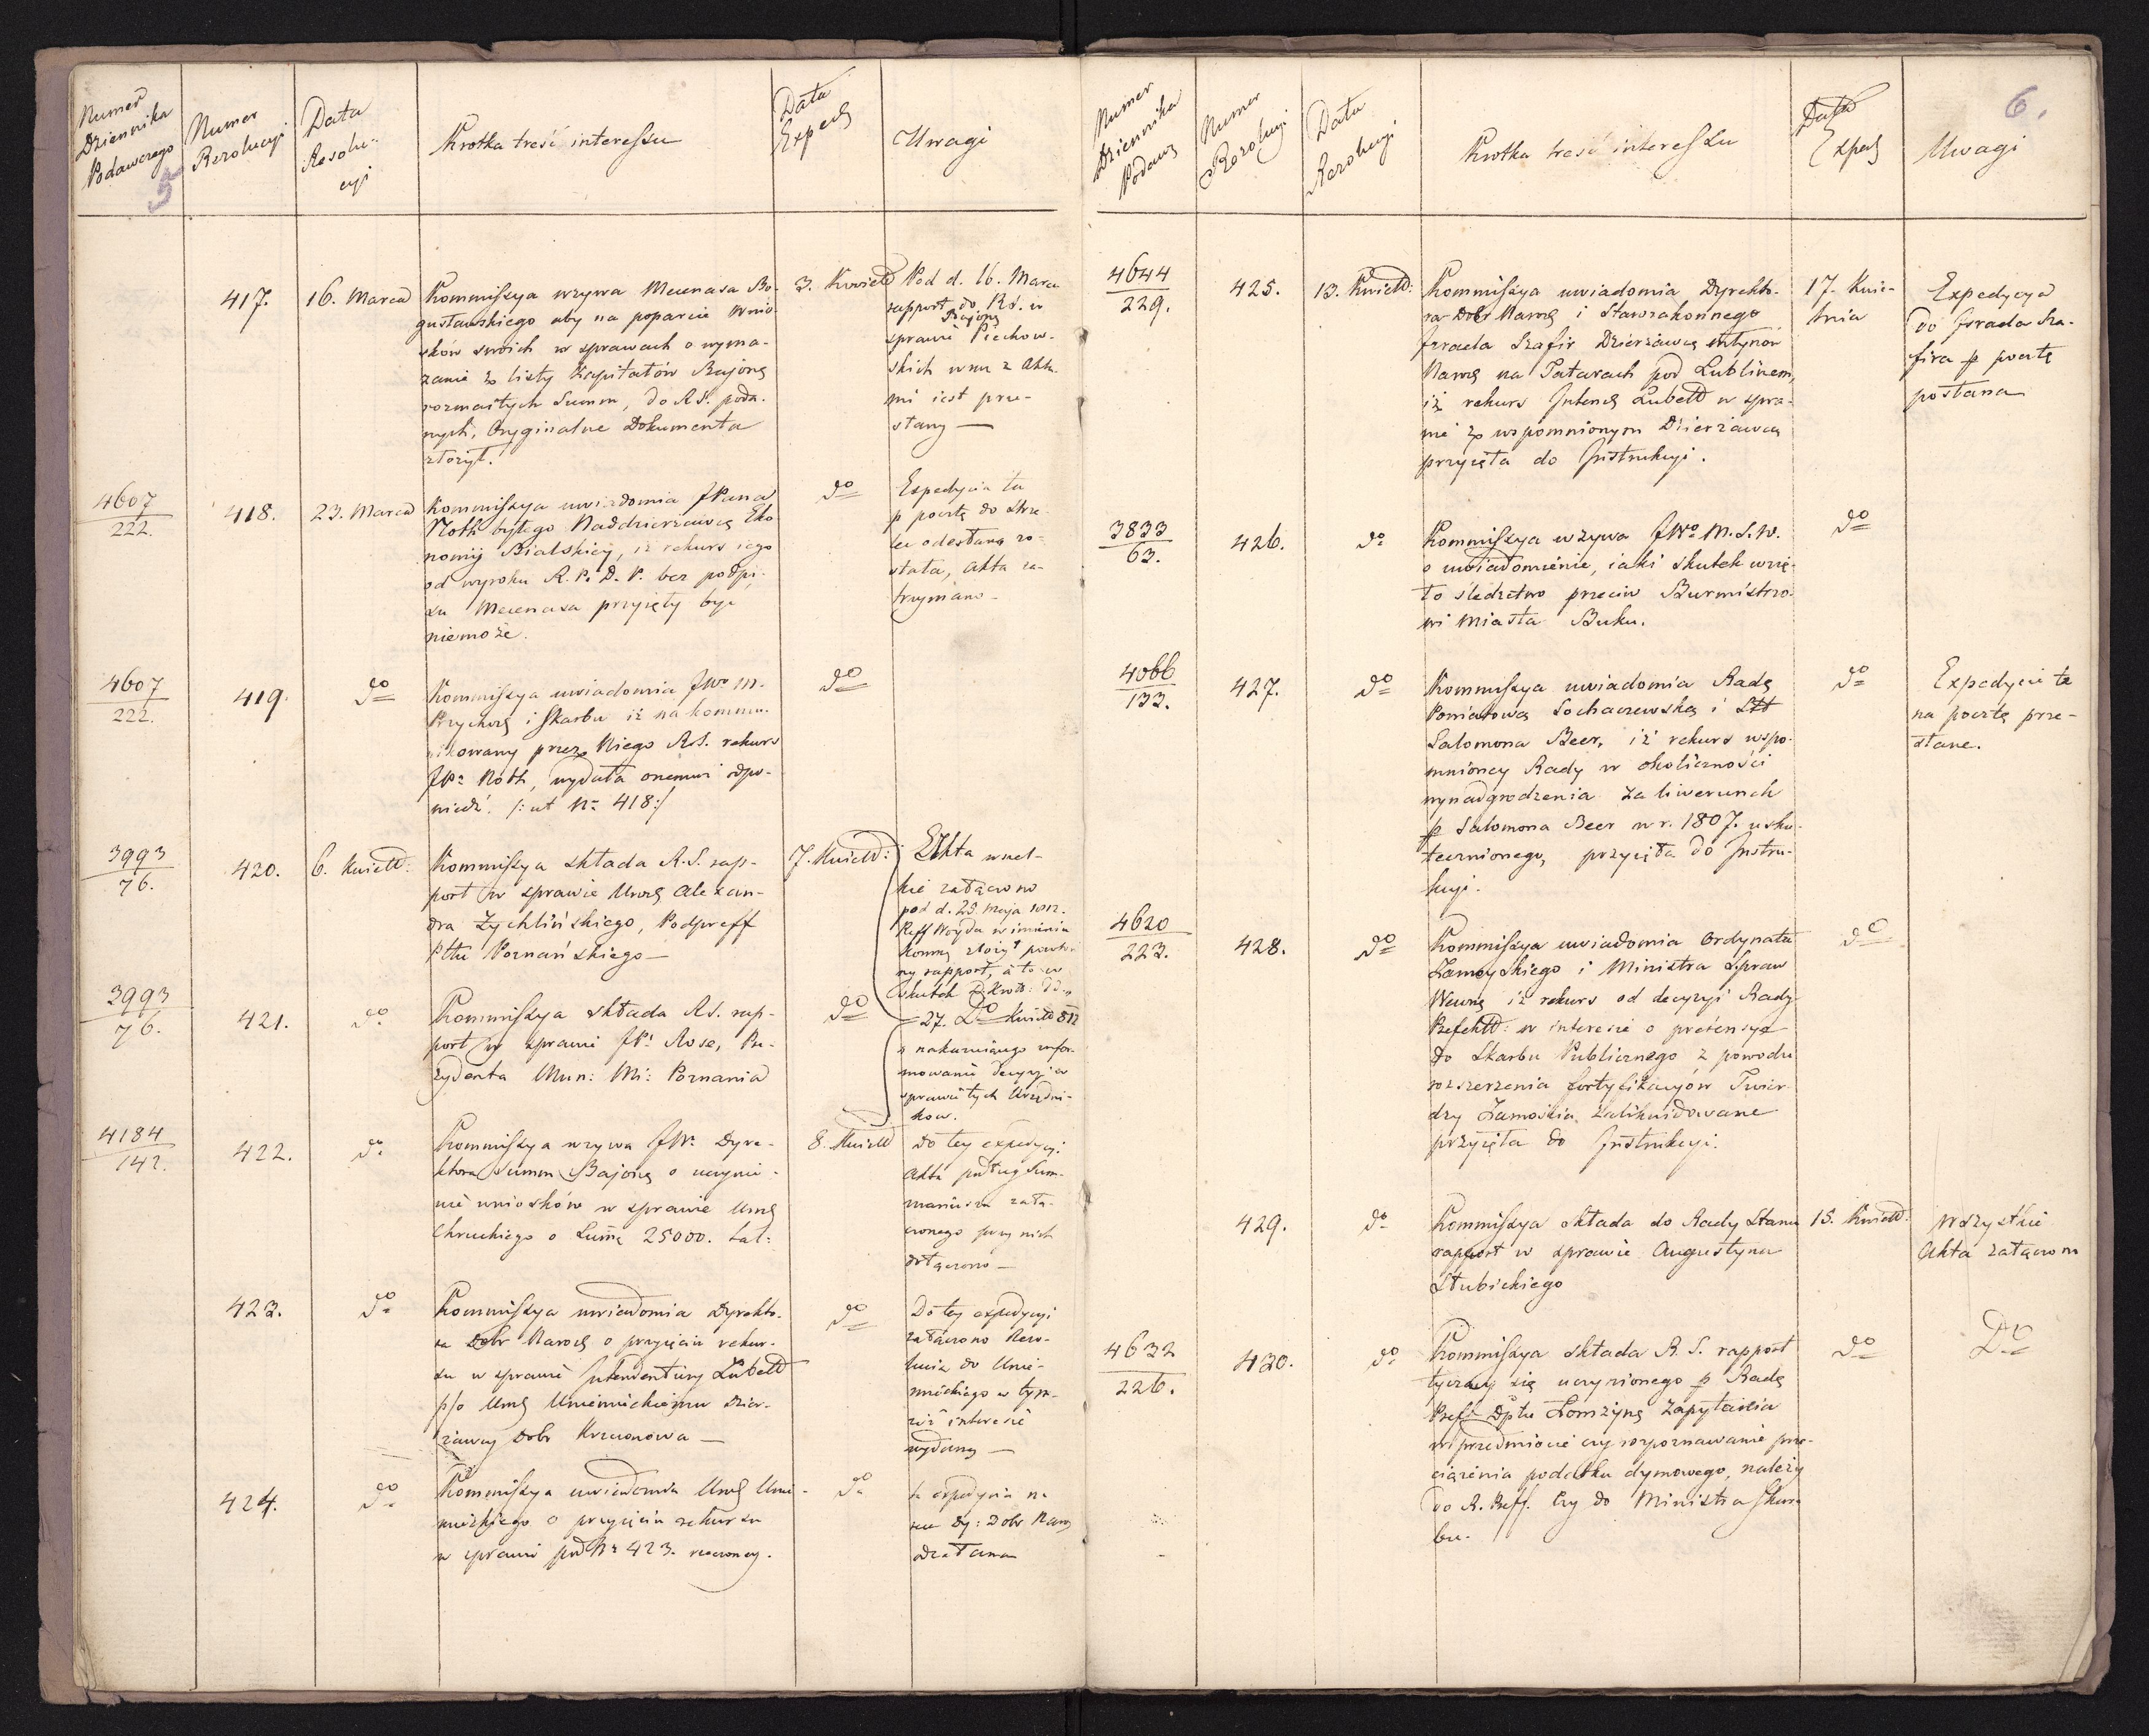 Numer
Dziennika
Podawczego
5
Numer
Rezolucyi
Data
Resolu-
cyi
Krotka treść interessu
Data
Exped
Uwagi
417.
16. Marca
Kommissya wzywa Mecenasa Bo-
gusławskiego aby na poparcie Wnio-
sków swoich w sprawach o wyma-
zanie z listy Kapitałów Bajońs
rozmaitych Summ, do R.S. poda-
nych, Oryginalne Dokumenta
złożył.
3. Kwiet
Pod d. 16. Marca
rapport do RS. w
Bajońs
sprawie Piechow-
skich wraz z Akta-
mi iest prze-
słany —
4607
222.
418.
23. Marca
Kommissya uwiadomia JPana
Noth byłego Naddzierżawcę Eko
nomij Bialskiey, iż rekurs iego
od wyroku R.P.D.P. bez podpi-
su Mecenasa przyięty być
niemoże.
do
Expedycia ta
p pocztę do
odesłaną zo-
stała, akta za-
trzymano —
4607
222.
419.
do
Kommissya uwiadomia JWo M.
Przychod i Skarbu iż na kommu-
nikowany przez Niego R.S. rekurs
JPa Noth, wydała onemuż odpo-
wiedź. /: ut No 418 :/
do
3993
76.
420.
6. Kwiet:
Kommissya składa R.S. rap-
port w sprawie Uroż Alexan-
dra Żychlińskiego, Podpreff
Pttu Poznańskiego —
7. Kwiet:
Akta wszel-
kie załączono
pod d. 23. Maja 1812.
Reff Woyda w imieniu
Kommis złożył powtór-
ny rapport, a to w
skutek
27. Do Kwiet 812
nakazuiącego infor-
mowanie decyzji w
sprawie tych Urzędni-
kow.
3993
76.
421.
do
Kommissya składa RS. rap-
port w sprawie JPa Rose, Pre-
zydenta Mun: Mi: Poznania
do
4184
142.
422.
do
Kommissya wzywa JWo Dyre-
ktora Summ Bajońs o uczynie-
nie wniosków w sprawie Uroż
Chruckiego o Summę 25000. tal:
8. Kwiet
Do tey expedycyi
Akta podług Sum-
maniusza załą-
czonego przy nich
dołączono —
423.
do
Kommissya uwiadomia Dyrekto-
ra Dobr Narod o przyjęciu rekur-
su w sprawie Intendentury Lubel
p/o Uroż Umieniickiemu Dzier-
żawcy Dobr Krzczonowa —
do
Do tey expedycyi
załączono Rezo-
lucią do Umie-
niickiego w tym-
że interesie
wydaną —
424.
do
Kommissya uwiadomia Uroż Umie-
nieckiego o przyjęciu rekursu
w sprawie pod No 423. rzeczoney.
do
ta expedycia na
ręce Dy: Dobr Narod
odesłana
6.
Numer
Dziennika
Podawcz
Numer
Rezolucyi
Data
Rezolucyi
Krotka treść interessu
Data
Exped
Uwagi
4644
229.
425.
13. Kwiet:
Kommissya uwiadomia Dyrekto-
ra Dobr Narod i Starozakonnego
Izraela Szafir Dzierżawcę młynów
Narod na Tatarach pod Lublinem,
iż rekurs Intend Lubel w spra-
wie z wspomnionym Dzierżawcą
przyięła do Instrukcyi.
17. Kwie-
tnia
Expedycya
do Izraela Sza-
fira p pocztę
posłana
3833
63.
426.
do
Kommissya wzywa JWo M.S.W.
o uwiadomienie, iaki skutek wzię-
to śledztwo przeciw Burmistrzo-
wi Miasta Buku.
do
4066
133.
427.
do
Kommissya uwiadomia Radę
Powiatową Sochaczewską i Stt
Salomona Beer, iż rekurs wspo-
mnioney Rady w okoliczności
wynadgrodzenia za liwerunek
p Salomona Beer w r. 1807. usku-
tecznionego, przyięła do Instru-
kcyi.
do
Expedycie te
na pocztę prze-
słane.
4620
223.
428.
do
Kommissya uwiadomia Ordynata
Zamoyskiego i Ministra Spraw
Wewnę iż rekurs od decyzyi Rady
Prefekt: w interesie o pretensye
do Skarbu Publicznego z powodu
rozszerzenia fortyfikacyów Twier-
dzy Zamościa zalikwidowane
przyięła do Instrukcyi.
do
429.
do
Kommissya składa do Rady Stanu
rapport w sprawie Augustyna
Słubickiego
15. Kwiet:
Wszystkie
Akta załączono
4632
226.
430.
do
Kommissya składa R.S. rapport
tyczący się uczynionego p Radę
Pref: Dptu Łomżyńs Zapytania
w przedmiocie czy rozpoznawanie prze-
ciążenia podatku dymowego, należy
do R. Preff. czy do Ministra Skar-
bu.
do
Do